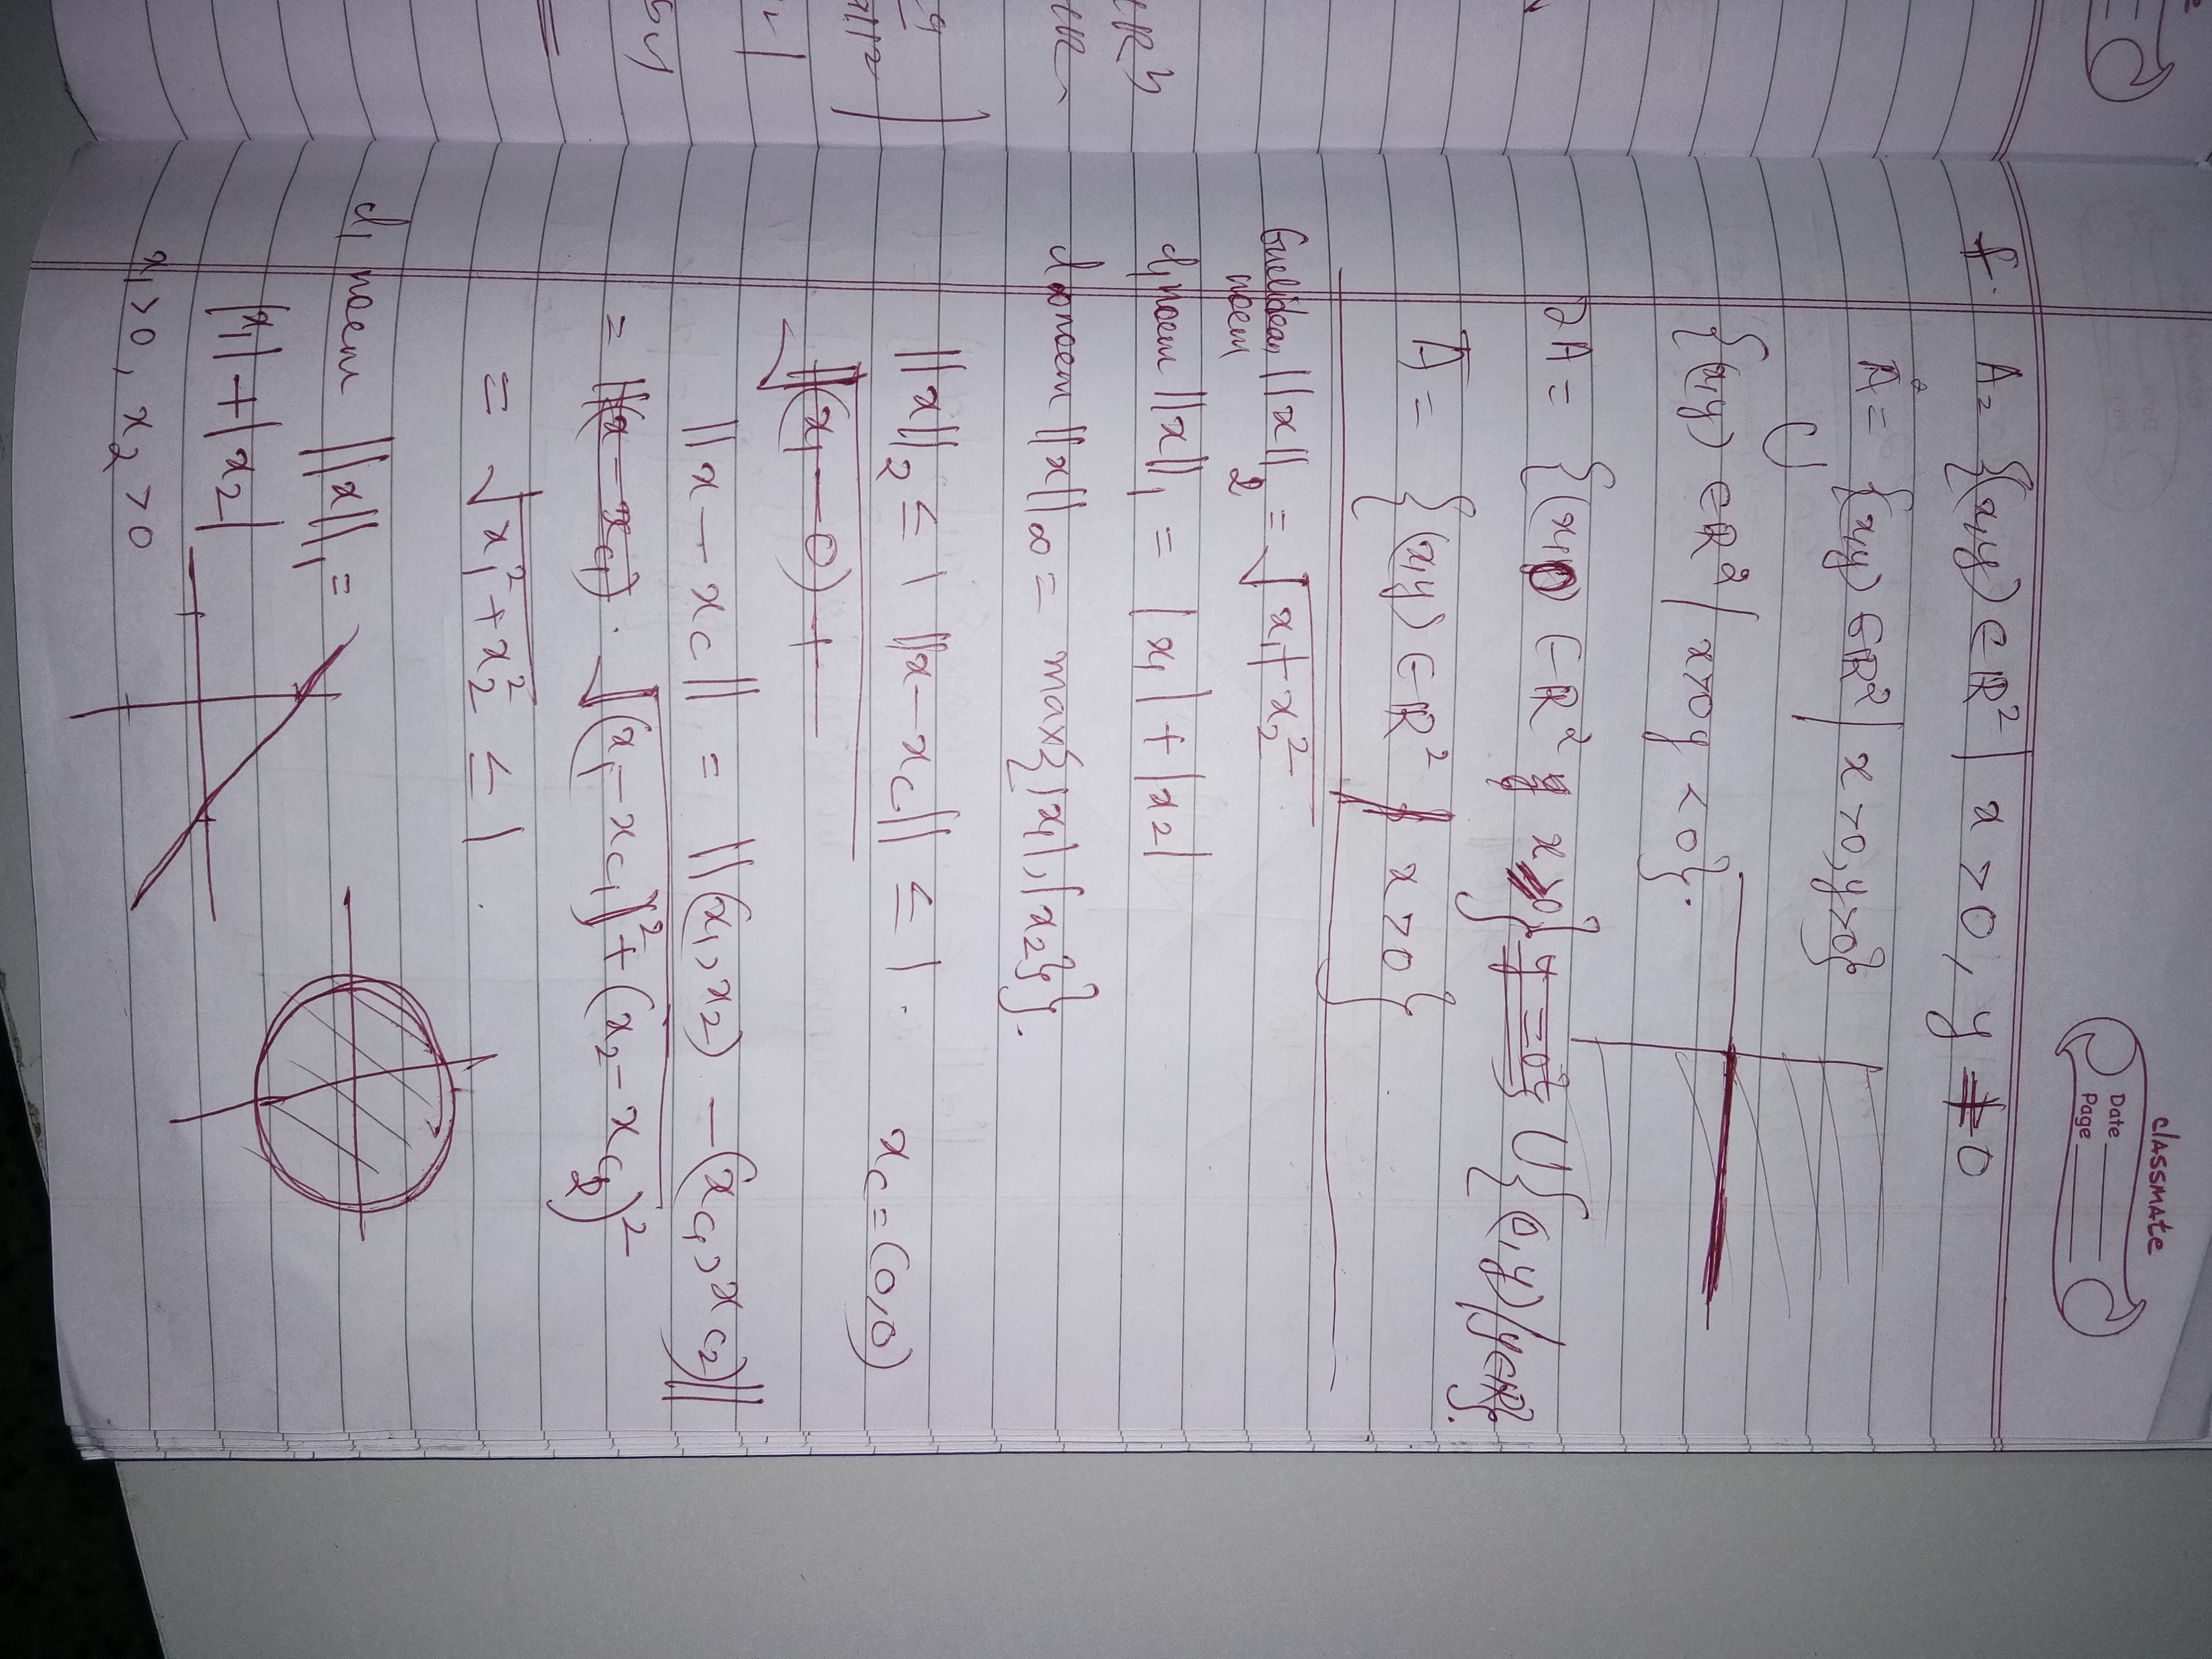 classmate
Date
Page
f. A = {(x,y) ∈ R² | x > 0, y ≠ 0
Å = {(x,y) ∈ R² | x > 0, y > 0}
∪
{(x,y) ∈ R² | x > 0 y < 0}.
∂A = {(x,0) ∈ R² x ≥ 0} ∪ {(0,y) | y ∈ R}.
Ā = {(x,y) ∈ R² | x > 0}
Euclidean norm ||x||₂ = √x₁ + x₂²
d₁ norm ||x||₁ = |x₁| + |x₂|
d∞ norm ||x||∞ = max{|x₁|, |x₂|}.
||x||₂ ≤ 1 ||x − xc|| ≤ 1. xc = (0,0)
√||(x₁ − 0) +
||x − xc|| = ||(x₁, x₂) − (xc₁, xc₂)||
= √(x₁ − xc₁)² + (x₂ − xc₂)²
= √x₁² + x₂² ≤ 1.
d₁ norm ||x||₁ =
|x₁| + |x₂|
x₁ > 0, x₂ > 0